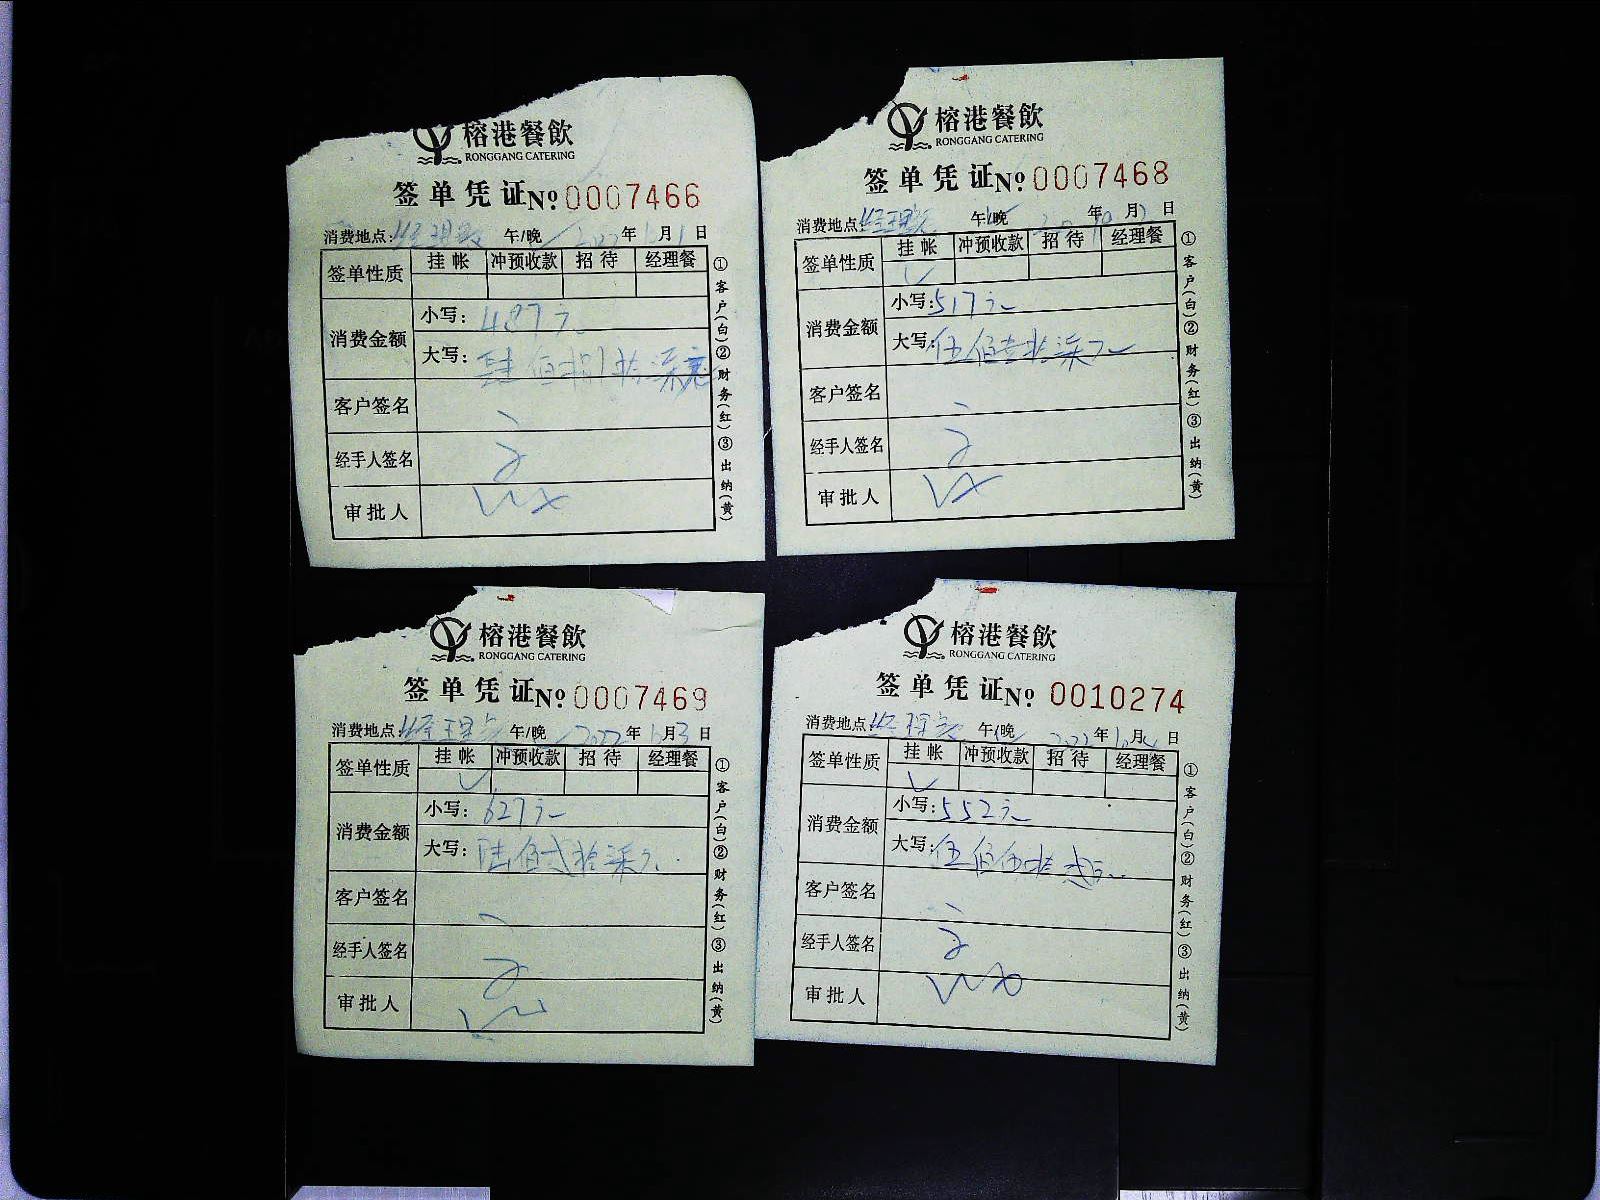 榕港餐飲
RONGGANG CATERING
签单凭证 No 0007466
消费地点: 午/晚 2022年 月1日
签单性质 挂帐 冲预收款 招待 经理餐
消费金额 小写: 487元
大写: 肆佰捌拾柒元
客户签名
经手人签名
审批人
①客户(白)②财务(红)③出纳(黄)
榕港餐飲
RONGGANG CATERING
签单凭证 No 0007468
消费地点: 午/晚 年 月 日
签单性质 挂帐 冲预收款 招待 经理餐
消费金额 小写: 517元
大写: 伍佰壹拾柒元
客户签名
经手人签名
审批人
①客户(白)②财务(红)③出纳(黄)
榕港餐飲
RONGGANG CATERING
签单凭证 No 0007469
消费地点: 午/晚 2022年 月3日
签单性质 挂帐 冲预收款 招待 经理餐
消费金额 小写: 627元
大写: 陆佰贰拾柒元
客户签名
经手人签名
审批人
①客户(白)②财务(红)③出纳(黄)
榕港餐飲
RONGGANG CATERING
签单凭证 No 0010274
消费地点: 午/晚 2022年 月 日
签单性质 挂帐 冲预收款 招待 经理餐
消费金额 小写: 552元
大写: 伍佰伍拾贰元
客户签名
经手人签名
审批人
①客户(白)②财务(红)③出纳(黄)